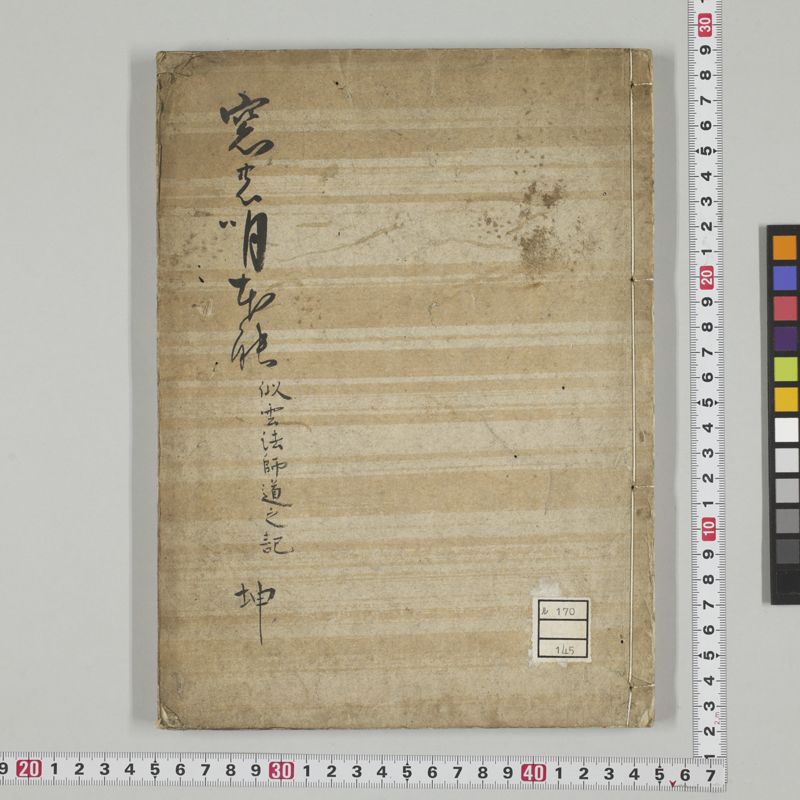 窓農明本能
似雲法師道之記
坤
ル 170
145
9 20 1 2 3 4 5 6 7 8 9 30 1 2 3 4 5 6 7 8 9 40 1 2 3 4 5 6 7
30 9 8 7 6 5 4 3 2 1 20 9 8 7 6 5 4 3 2 1 10 9 8 7 6 5 4 3 2 1